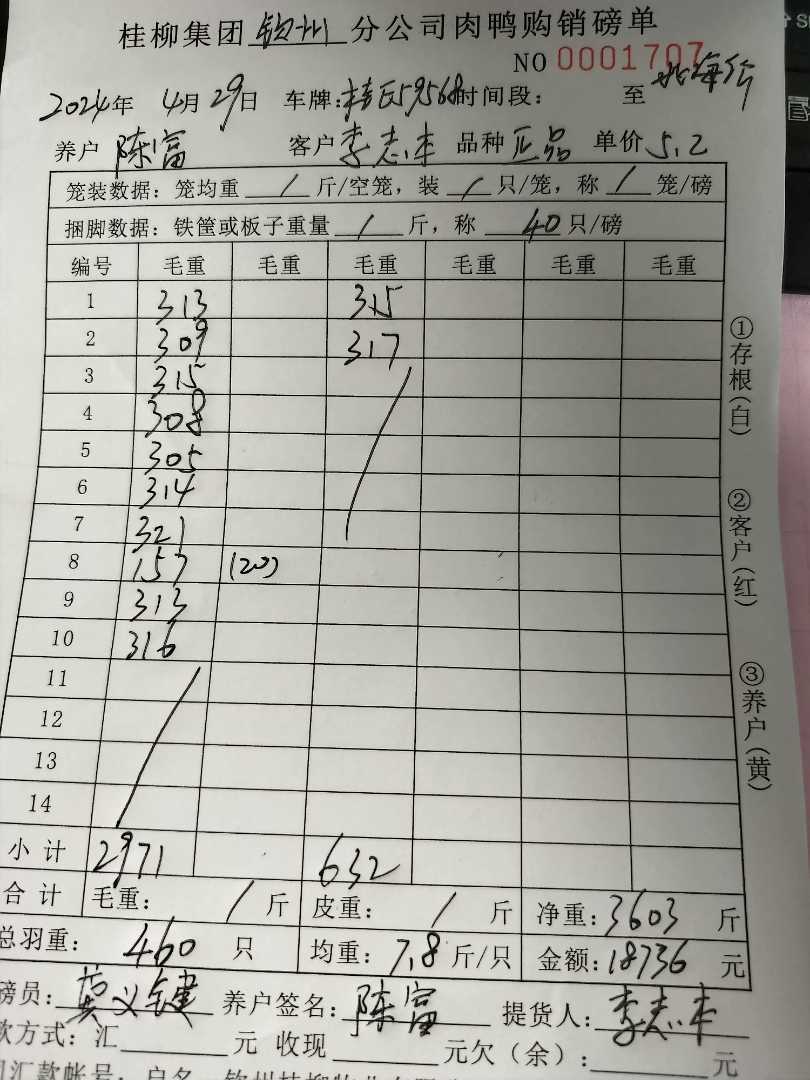 桂柳集团 钦州 分公司肉鸭购销磅单
NO 0001707
2024年 4月29日 车牌：桂E59568 时间段： 至 北海价
养户 陈富 客户 李志丰 品种 正品 单价 5.2
笼装数据：笼均重 / 斤/空笼，装 / 只/笼，称 / 笼/磅
捆脚数据：铁筐或板子重量 / 斤，称 40 只/磅
编号 毛重 毛重 毛重 毛重 毛重 毛重
1 313 315
2 309 317
3 315
4 308
5 305
6 314
7 321
8 157 (20)
9 313
10 316
11
12
13
14
小计 2971 632
合计 毛重： / 斤 皮重： / 斤 净重：3603 斤
总羽重： 460 只 均重：7.8 斤/只 金额：18736 元
磅员： 义键 养户签名： 陈富 提货人：李志丰
款方式：汇 元 收现 元欠（余）： 元
汇款帐号：户名
①存根（白）
②客户（红）
③养户（黄）